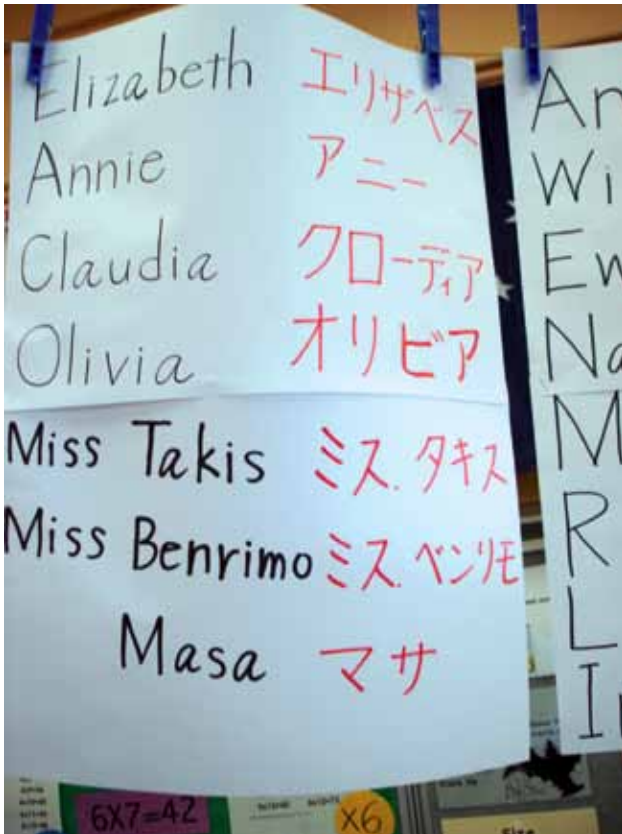 Elizabeth エリザベス
Annie アニー
Claudia クローディア
Olivia オリビア
Miss Takis ミス.タキス
Miss Benrimo ミス.ベンリモ
Masa マサ
An
Wi
Ew
Na
M
R
L
I
6X7=42
X6